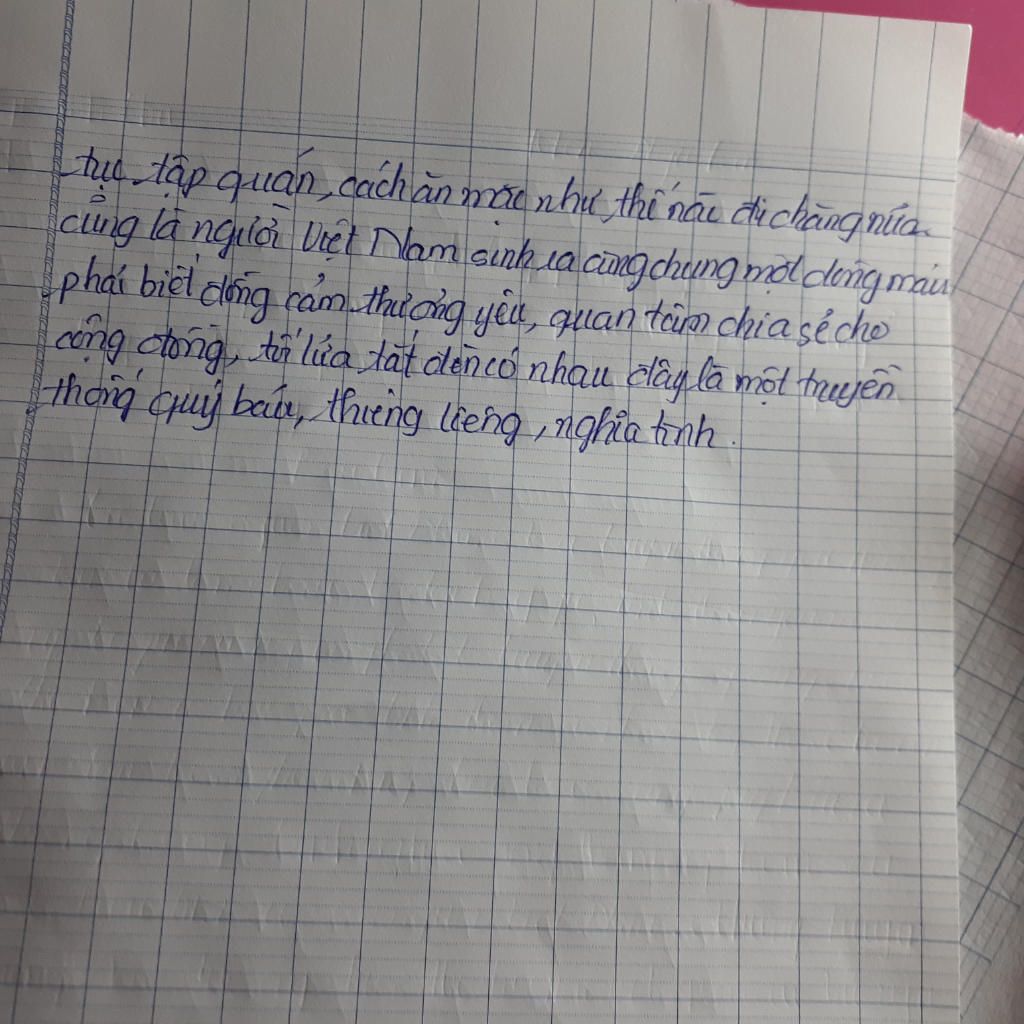 tục tập quán, cách ăn mặc như thế nào đi chăng nữa
cũng là người Việt Nam sinh ra cùng chung một dòng máu
phải biết đồng cảm thương yêu, quan tâm chia sẻ cho
cộng đồng, tối lửa tắt đèn có nhau đây là một truyền
thống quý báu, thiêng liêng, nghĩa tình.